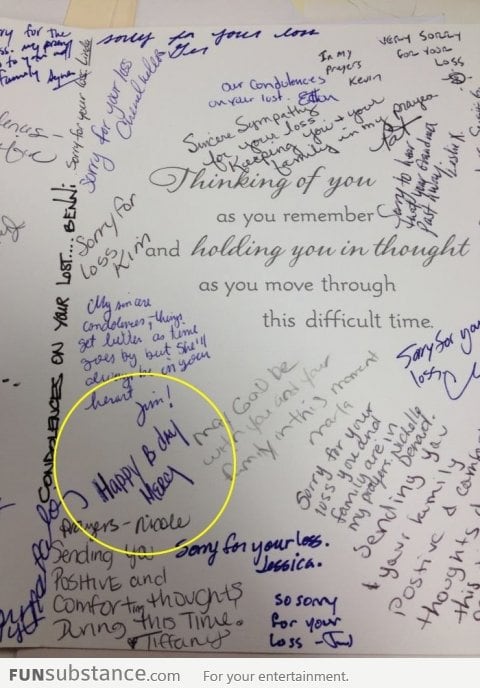 ry for the
sorry for your loss
Sorry for your loss
Sorry for your loss
In my
Prayers
Kevin
very sorry
for your
loss
our Condolences
on your lost.
Sincere Sympathy
for your loss
Keeping you & your
family in my prayers
Pat
Sorry to hear
that your Grandma
Past Away.
Leslie K.
Thinking of you
as you remember
and holding you in thought
as you move through
this difficult time.
Sorry for
loss
Kim
CONDOLENCES ON YOUR LOST.... BENNI
My sincere
condolences, things
get better as time
goes by but She'll
always be in your
heart
Jim!
Sorry for you
loss
may God be
with you and your
family in this moment
maria
Happy B day
Mercy
Sorry for your
loss you and
family are in
my prayers.
Sending you
& your family
Positive & com
thoughts d
this
Prayers - nicole
Sending you
Positive and
Comforting thoughts
During this Time.
Tiffany
Sorry for your loss.
Jessica.
so sorry
for your
loss
FUNsubstance.com For your entertainment.